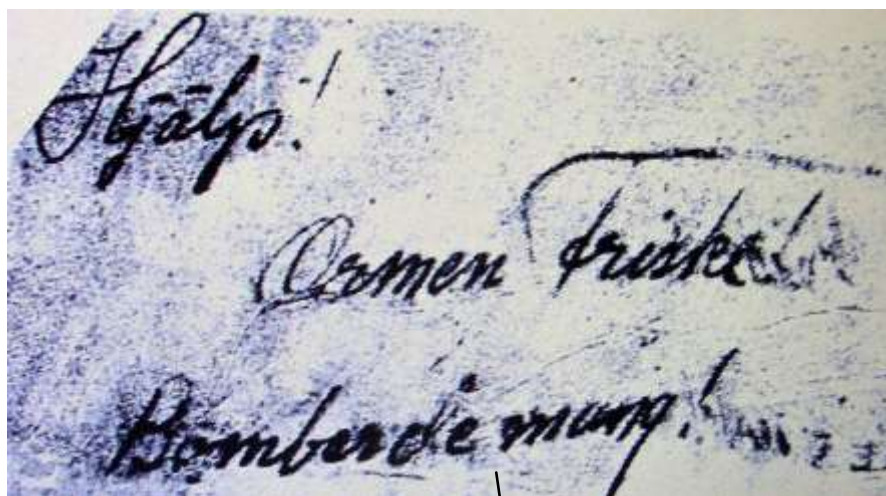 Hjälp!
Ormen Friske!
Bomberdemang!